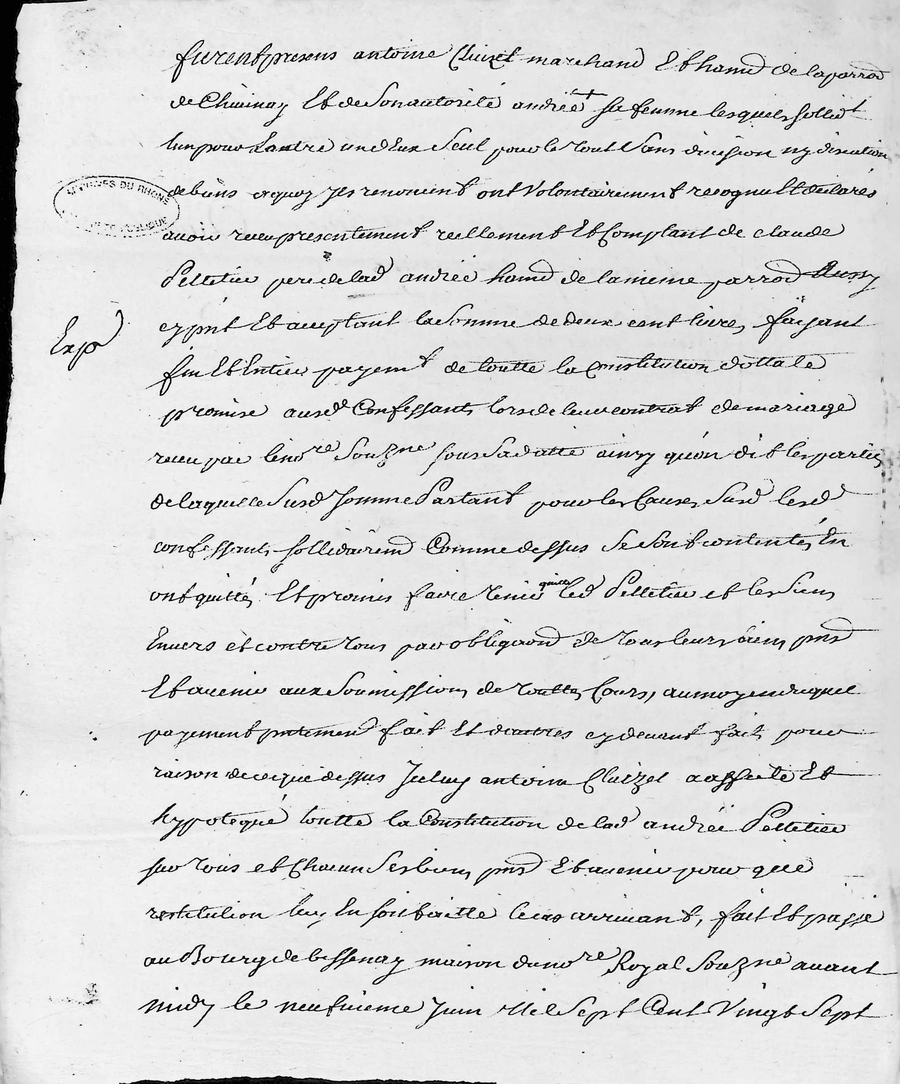 furent presens antoine Cluizel marchand Et hand de la parrod
de Chivinay Et de Son autorité andrée + sa femme lesquels sollidt
lun pour Lautre un d'Eux Seul pour le tout Sans division ny discution
de biens aquoy jls renoncent ont Volontairement recognu Et declarés
ARCHIVES DU RHONE
avoir receu presentement reellement Et Comptant de claude
Pelletier pere de lad andrée hand de la meme parrod
Exp
cy pnt Et acceptant la Somme de deux cent livres, faisant
fin Et Entier payemt de toutte la Constitution dottale
promise ausd Confessants lors de leur contrat de mariage
receu par le nore Souzne sous Sa datte ainsy qu'on dit les parties
de laquelle Susd Somme Partant pour les Causes Susd lesd
confessants sollidairemd Comme dessus Se Sont contentés En
ont quittés Et promis faire tenir quitte led Pelletier et les Siens
Envers et contre tous par obligaond de tous leurs biens pnts
Et avenir aux Soumissions de touttes Cours, au moyen duquel
payement pntement fait Et d'autres cy devant faits pour
raison de ce que dessus Jceluy antoine Cluizel a affecté Et
hypotequé toutte la Constitution de lad andrée Pelletier
sur tous et Chacun Ses biens pnts Et avenir pour que
restitution luy En soit faitte le cas arrivant, fait Et passé
au Bourg de bessenay maison du nore Royal Souzne avant
midy le neufvieme Juin Mil Sept Cent Vingt Sept